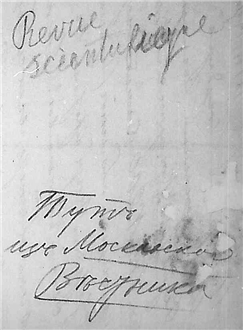 Revue
scientifique
Тутъ
изъ Московскаго
Вѣстника